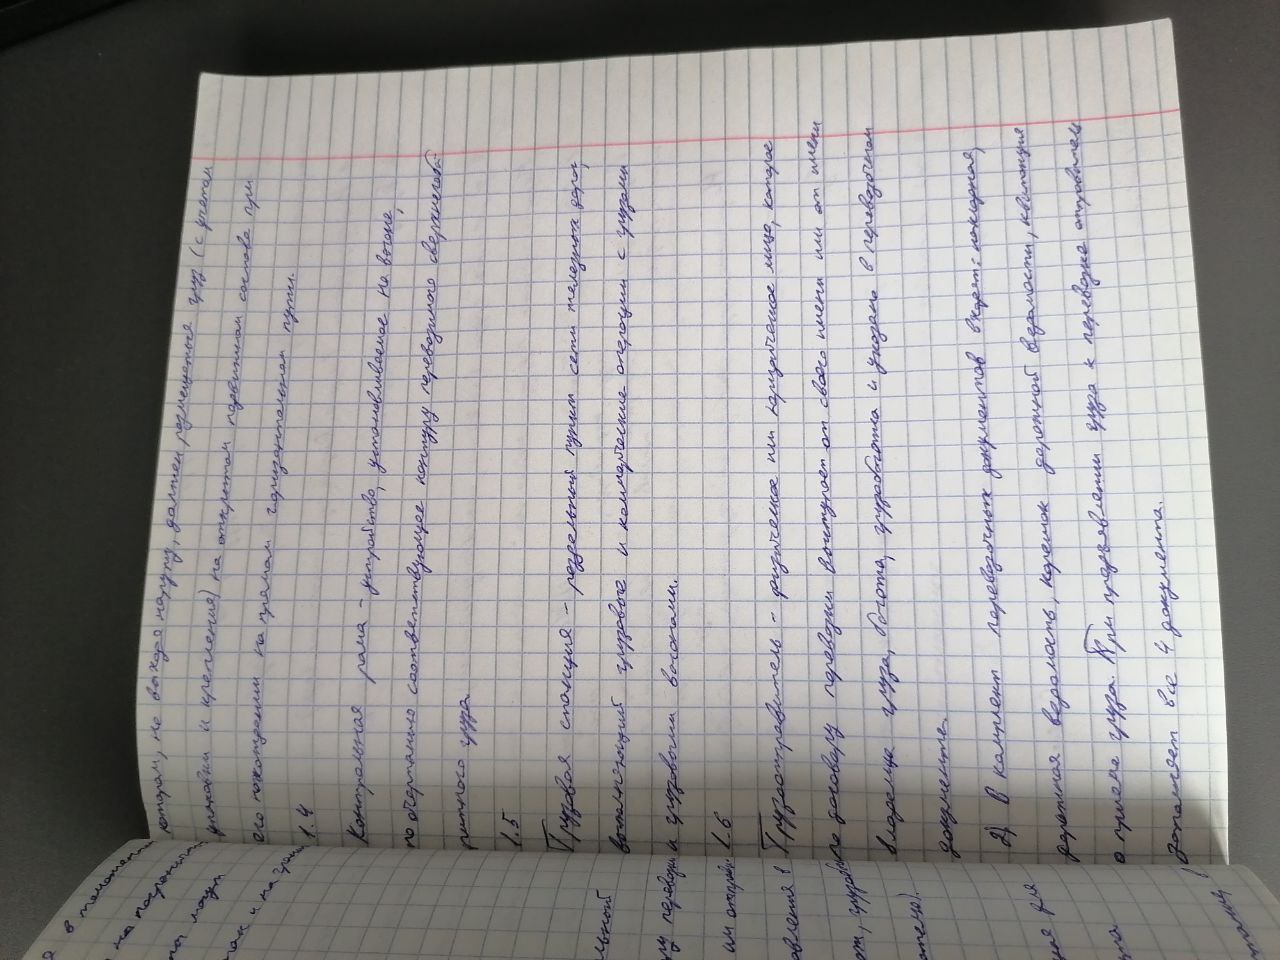 котором, не выходя наружу, должен размещаться груз (с учетом
упаковки и крепления) на открытом подвижном составе при
его нахождении на прямом горизонтальном пути.
1.4
Контрольная рама - устройство, устанавливаемое на вагоне,
по очертанию соответствующее контуру перевозимого сверхнегаба
ритного груза
1.5
Грузовая станция - раздельный пункт сети железных дорог,
выполняющий грузовые и коммерческие операции с грузами
и грузовыми вагонами.
1.6
Грузоотправитель - физическое или юридическое лицо, которое
по договору перевозки выступает от своего имени или от имени
владельца груза, багажа, грузобагажа и указано в перевозочном
документе.
2) В комплект перевозочных документов входят: накладная,
дорожная ведомость, корешок дорожной ведомости, квитанция
о приеме груза. При предъявлении груза к перевозке отправитель
заполняет все 4 документа.